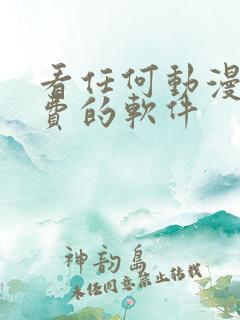 看任何動漫
費的軟件
神韵島
未经同意禁止转载